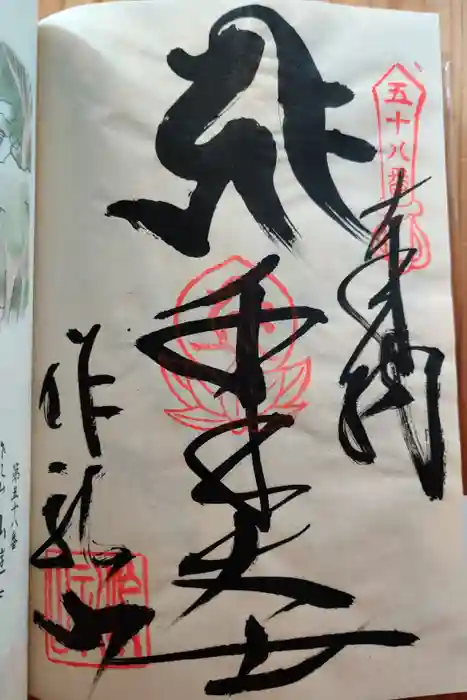 五十八番
奉納
千手大士
作礼山
第五十八番